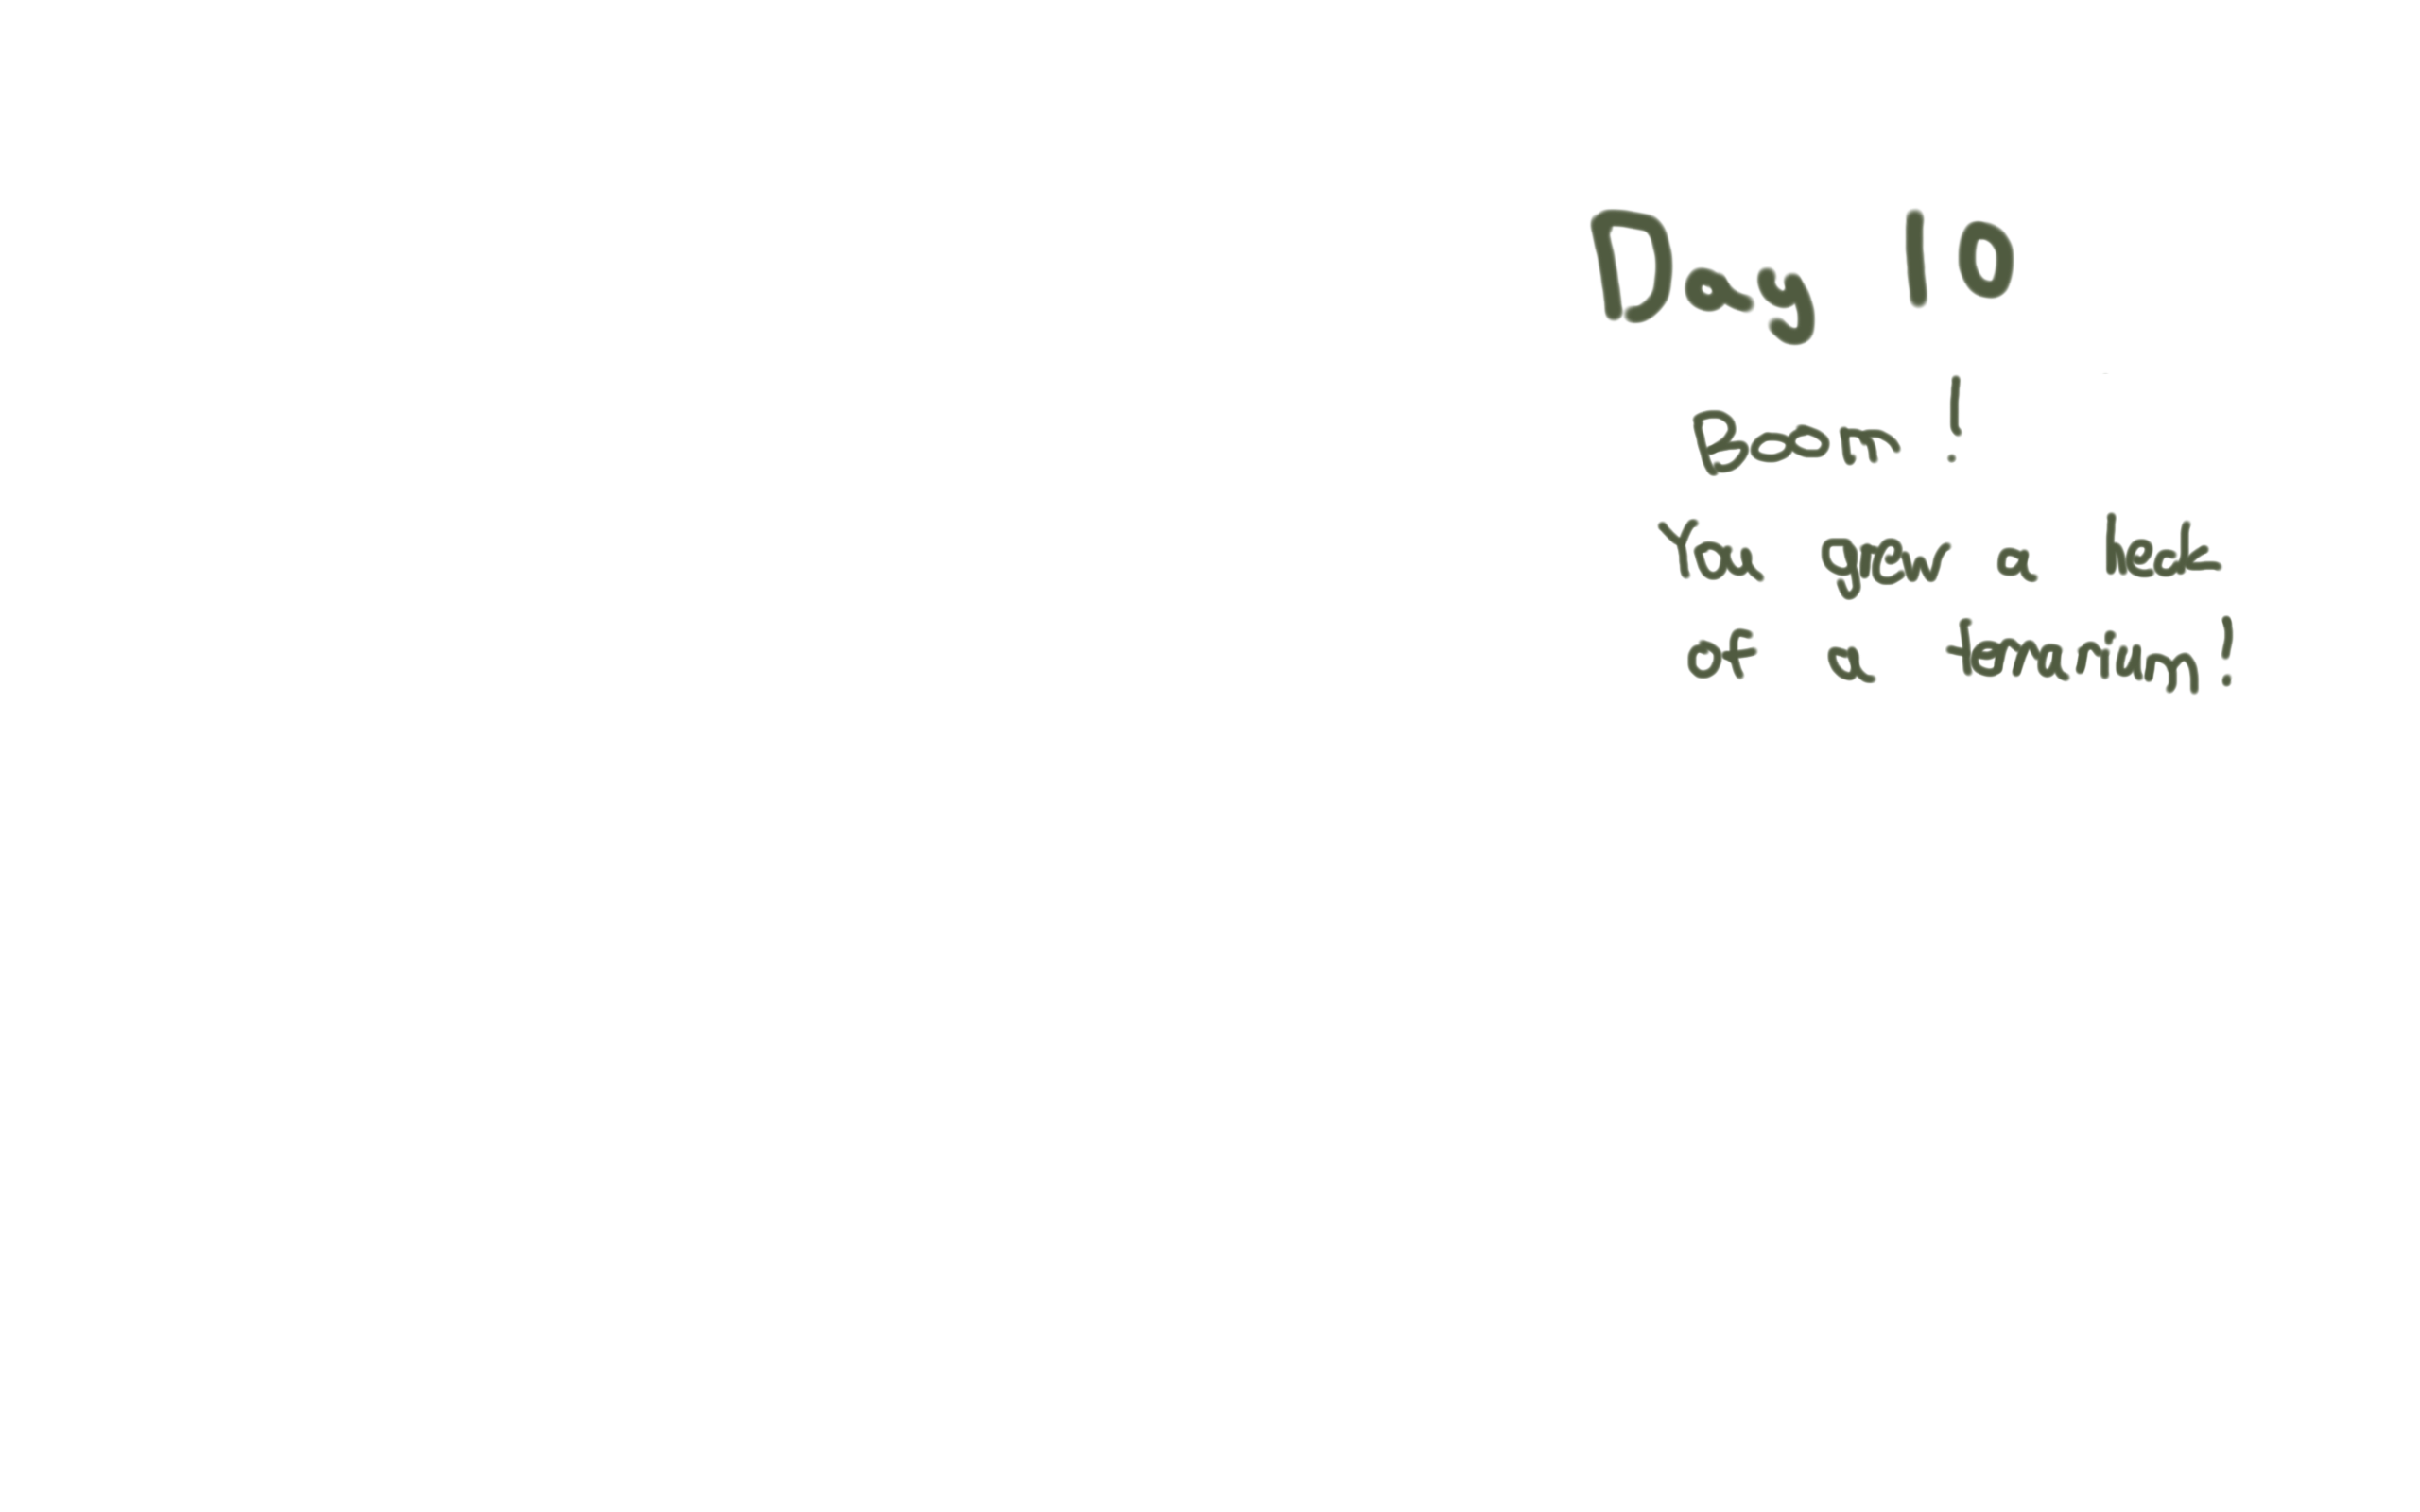 Day 10
Boom!
You grew a heck
of a terrarium!